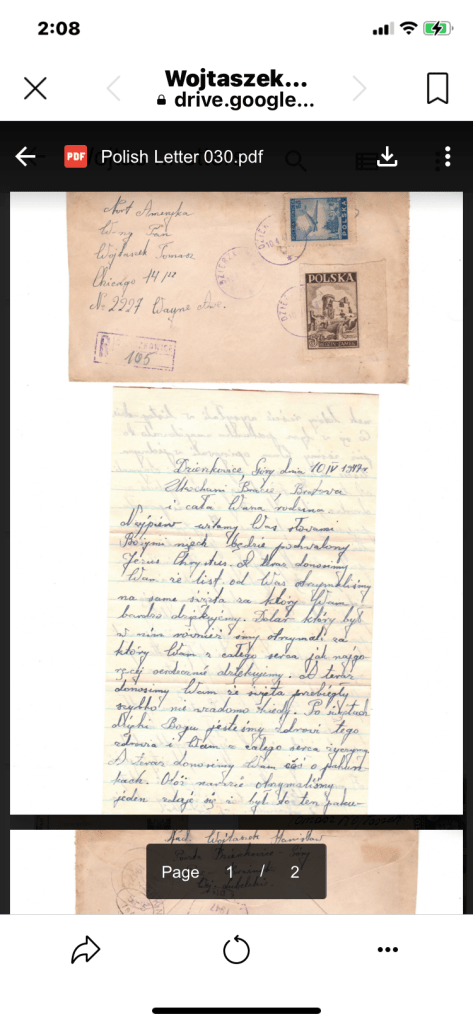 2:08
Wojtaszek...
drive.google...
PDF Polish Letter 030.pdf
Nort Ameryka
W-ny Pan
Wojtaszek Tomasz
Chicago 14 Ill
Nr. 2227 Wayne Ave.
POLSKA
POLSKA
105
Dzierżkowice, Góry dnia 10/IV 1947r
Ukochani Bracie, Bratowa
i cała Wasza rodzina
Najpierw witamy Was słowami
Bożymi niech będzie pochwalony
Jezus Chrystus. A teraz donosimy
Wam że list od Was otrzymaliśmy
na same święta za który Wam
bardzo dziękujemy. Dolar który był
w nim również śmy otrzymali za
który Wam z całego serca jak najgo-
ręcej serdecznie dziękujemy. A teraz
donosimy Wam że święta przebiegły
szybko nie wiadomo kiedy. Po świętach
dzięki Bogu jesteśmy zdrowi tego
zdrowia i Wam z całego serca życzymy
A teraz donosimy Wam coś o paczusz-
kach. Otóż narazie otrzymaliśmy
jeden zdaje się że był to ten
Wojtaszek Stanisław
Page 1 / 2